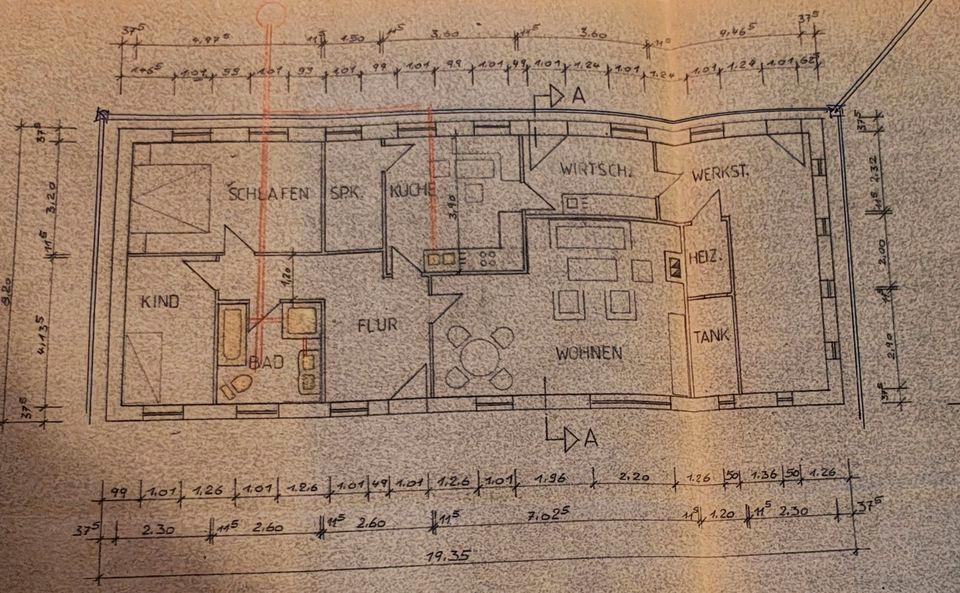 37⁵ 4.97⁵ 11⁵ 1.50 11⁵ 3.60 11⁵ 3.60 11⁵ 4.46⁵ 37⁵
1.46⁵ 1.01 99 1.01 99 1.01 99 1.01 99 1.01 49 1.01 1.24 1.01 1.24 1.01 1.24 1.01 62⁵
A
SCHLAFEN SPK. KÜCHE WIRTSCH. WERKST.
3.90
HEIZ.
1.20
KIND FLUR
BAD WOHNEN TANK
A
37⁵
3.20
11⁵
4.135
37⁵
37⁵
2.32
11⁵
2.00
11⁵
2.90
37⁵
99 1.01 1.26 1.01 1.26 1.01 49 1.01 1.26 1.01 1.96 2.20 1.26 50 1.36 50 1.26
37⁵ 2.30 11⁵ 2.60 11⁵ 2.60 11⁵ 7.02⁵ 11⁵ 1.20 11⁵ 2.30 37⁵
19.35